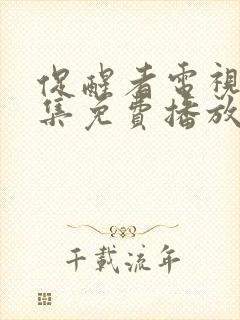 促醒者電視
集免費播放
千載流年